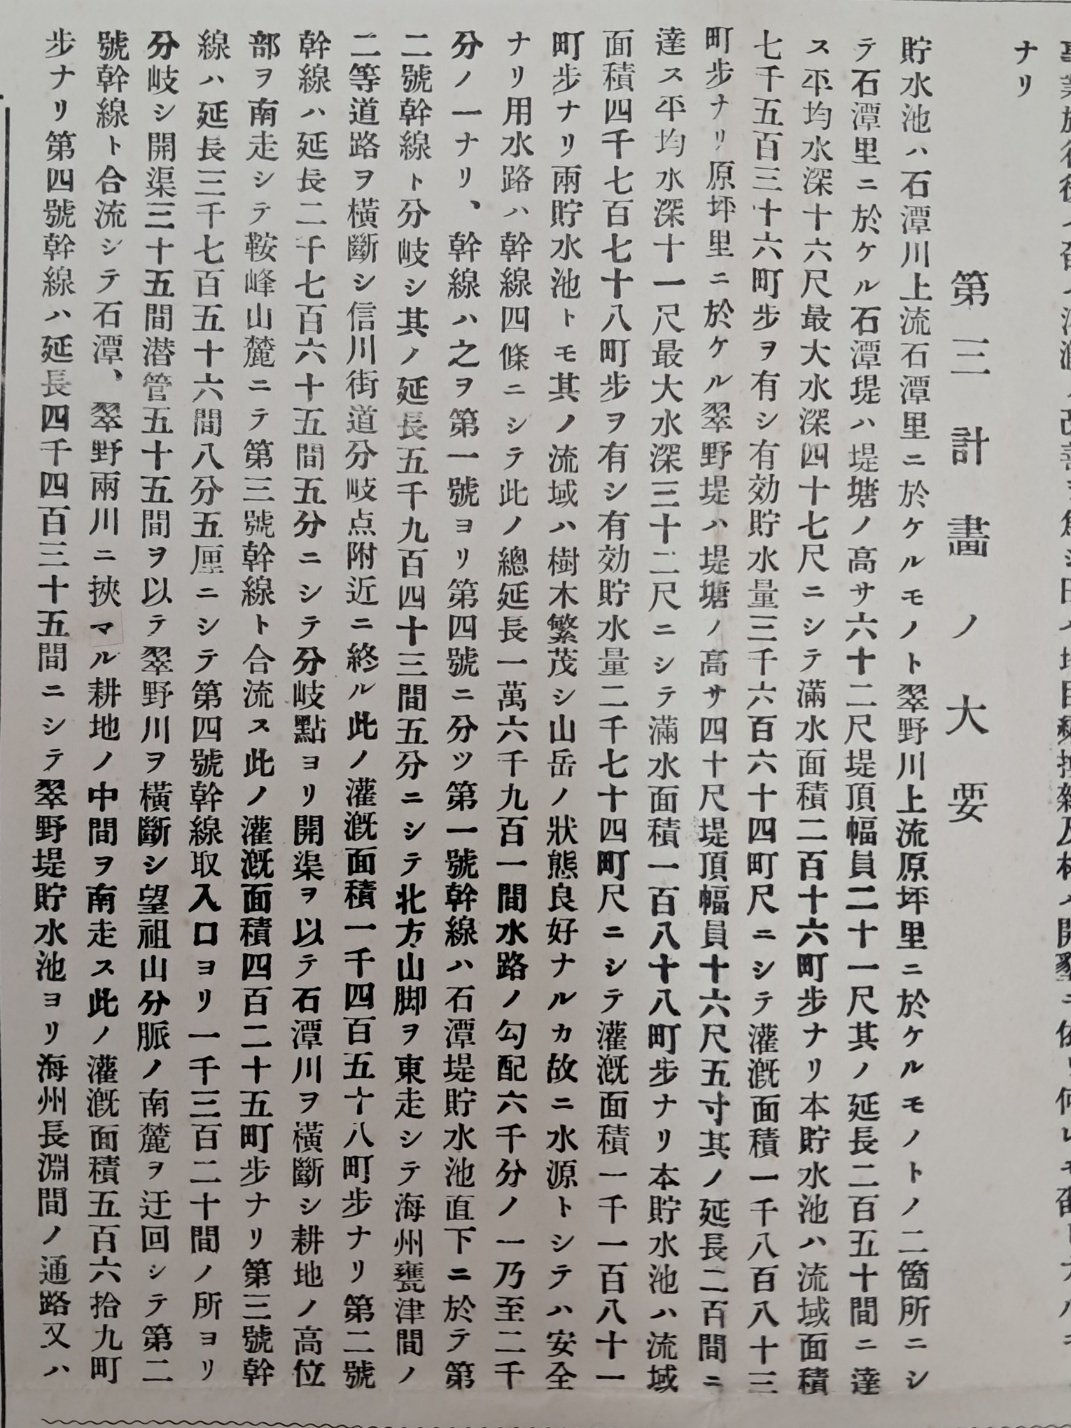 ナリ
第三計畫ノ大要
貯水池ハ石潭川上流石潭里ニ於ケルモノト翠野川上流原坪里ニ於ケルモノトノ二箇所ニシ
テ石潭里ニ於ケル石潭堤ハ堤塘ノ高サ六十二尺堤頂幅員二十一尺其ノ延長二百五十間ニ達
ス平均水深十六尺最大水深四十七尺ニシテ滿水面積二百十六町步ナリ本貯水池ハ流域面積
七千五百三十六町步ヲ有シ有効貯水量三千六百六十四町尺ニシテ灌漑面積一千八百八十三
町步ナリ原坪里ニ於ケル翠野堤ハ堤塘ノ高サ四十尺堤頂幅員十六尺五寸其ノ延長二百間ニ
達ス平均水深十一尺最大水深三十二尺ニシテ滿水面積一百八十八町步ナリ本貯水池ハ流域
面積四千七百七十八町步ヲ有シ有効貯水量二千七十四町尺ニシテ灌漑面積一千一百八十一
町步ナリ兩貯水池トモ其ノ流域ハ樹木繁茂シ山岳ノ狀態良好ナルカ故ニ水源トシテハ安全
ナリ用水路ハ幹線四條ニシテ此ノ總延長一萬六千九百一間水路ノ勾配六千分ノ一乃至二千
分ノ一ナリ、幹線ハ之ヲ第一號ヨリ第四號ニ分ツ第一號幹線ハ石潭堤貯水池直下ニ於テ第
二號幹線ト分岐シ其ノ延長五千九百四十三間五分ニシテ北方山脚ヲ東走シテ海州甕津間ノ
二等道路ヲ橫斷シ信川街道分岐点附近ニ終ル此ノ灌漑面積一千四百五十八町步ナリ第二號
幹線ハ延長二千七百六十五間五分ニシテ分岐點ヨリ開渠ヲ以テ石潭川ヲ橫斷シ耕地ノ高位
部ヲ南走シテ鞍峰山麓ニテ第三號幹線ト合流ス此ノ灌漑面積四百二十五町步ナリ第三號幹
線ハ延長三千七百五十六間八分五厘ニシテ第四號幹線取入口ヨリ一千三百二十間ノ所ヨリ
分岐シ開渠三十五間潜管五十五間ヲ以テ翠野川ヲ橫斷シ望祖山分脈ノ南麓ヲ迂回シテ第二
號幹線ト合流シテ石潭、翠野兩川ニ挾マル耕地ノ中間ヲ南走ス此ノ灌漑面積五百六拾九町
步ナリ第四號幹線ハ延長四千四百三十五間ニシテ翠野堤貯水池ヨリ海州長淵間ノ通路又ハ